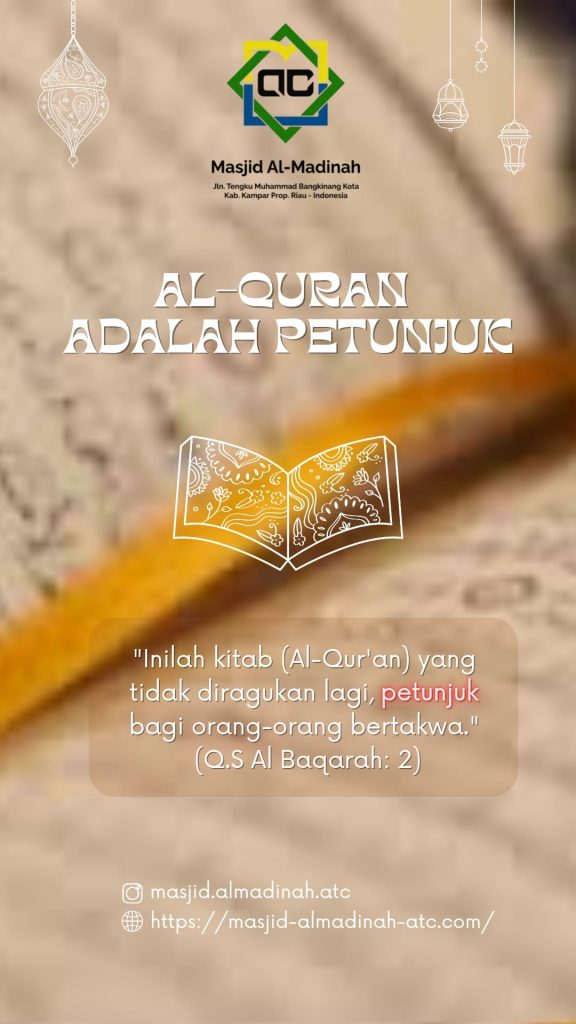 ac
Masjid Al-Madinah
Jln. Tengku Muhammad Bangkinang Kota
Kab. Kampar Prop. Riau - Indonesia
AL-QURAN
ADALAH PETUNJUK
"Inilah kitab (Al-Qur'an) yang
tidak diragukan lagi, petunjuk
bagi orang-orang bertakwa."
(Q.S Al Baqarah: 2)
masjid.almadinah.atc
https://masjid-almadinah-atc.com/